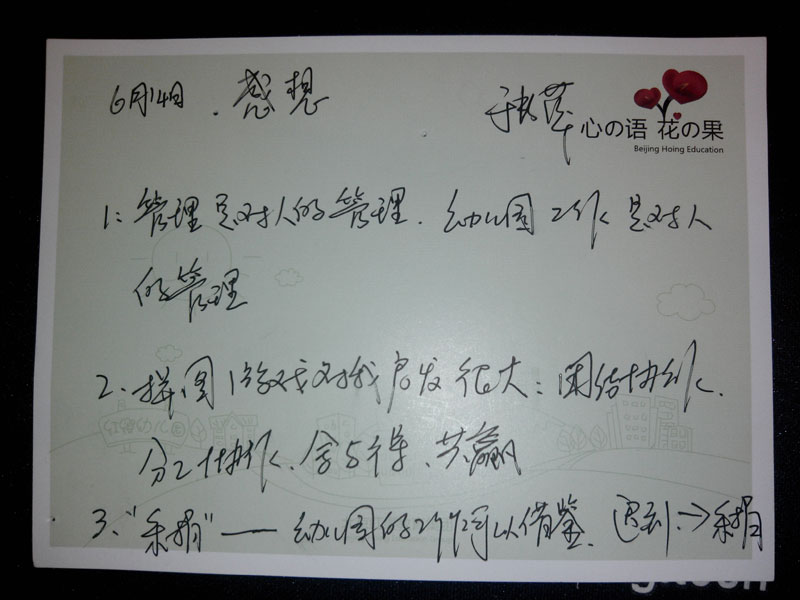 6月14日 . 感想
心の语 花の果
Beijing Hoing Education
1: 管理是对人的管理. 幼儿园工作是对人
的管理
2、拼图游戏对我启发很大: 团结协作、
分工协作、舍与得、共赢
3、" " —— 幼儿园的工作可以借鉴. 遇到 →